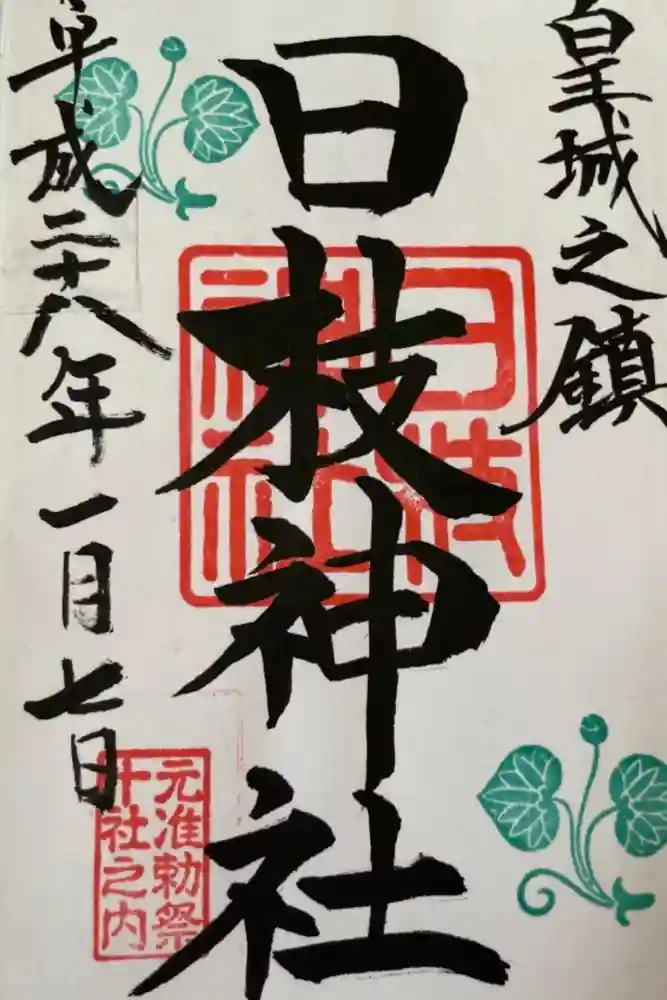 皇城之鎮
日枝神社
日枝
神社
平成二十八年一月七日
元准勅祭
十社之内